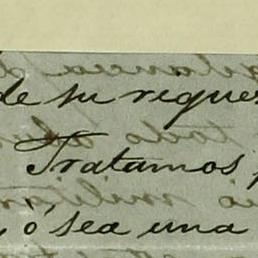 de su reques
Tratamos
, ó sea una